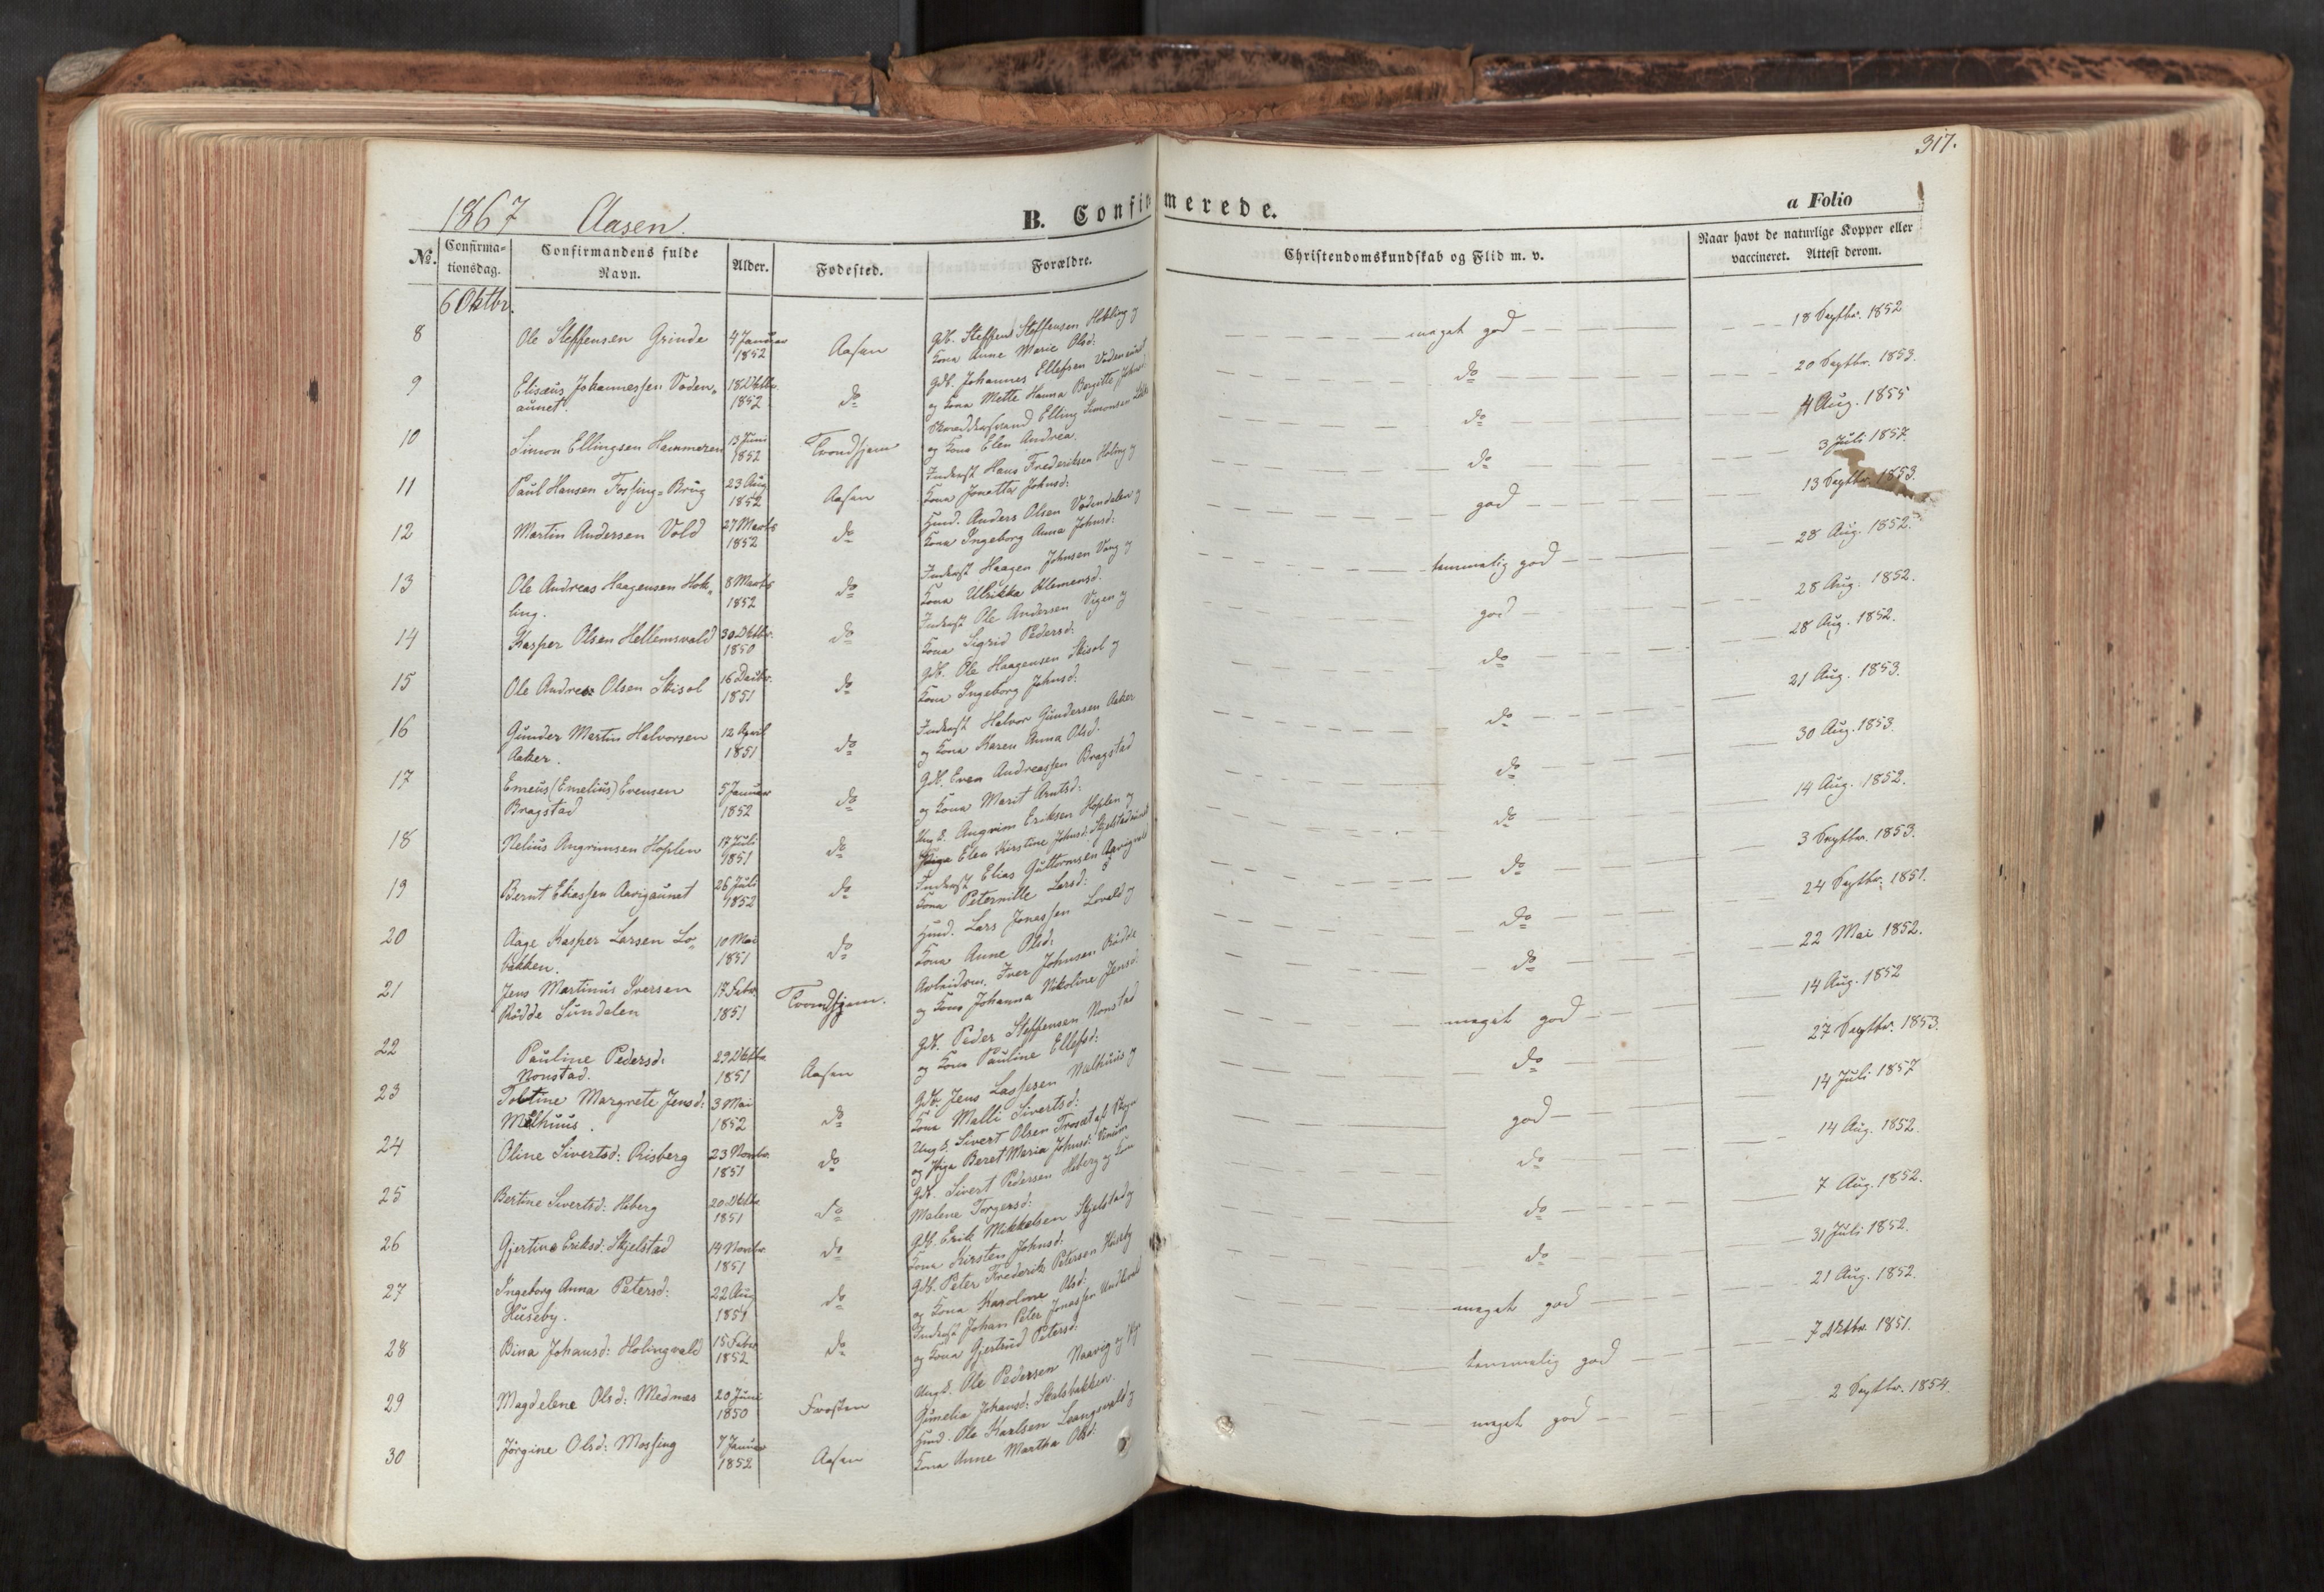 317.
1867 Aasen.
B. Confirmerede.
a Folio
No.
Confirma-
tionsdag.
Confirmandens fulde
Navn.
Alder.
Fødested.
Forældre.
Christendomskundskab og Flid m. v.
Naar havt de naturlige Kopper eller
vaccineret. Attest derom.
6 Oktbr.
8 Ole Steffensen Grinde 4 Januar 1852 Aasen Gdb. Steffen Steffensen Hokling og
Kone Anne Marie Olsd: meget god 18 Septbr. 1852
9 Elisæus Johannessen Voden-
aunet. 18 Oktbr. 1852 do Gdb. Johannes Ellefsen Vodenaunet
og Kone Mette Hanna Bergitte Johnsd: do 20 Septbr. 1853.
10 Simon Ellingsen Hammeren 13 Juni 1852 Trondhjem Elling Simonsen
og Kone Elen Andrea. do 4 Aug. 1855
11 Paul Hansen Fossing-Brug 23 Aug 1852 Aasen Inderst Hans Frederiksen Holing og
Kone Jonetta Johnsd: do 3 Juli 1857.
12 Martin Andersen Vold 27 Marts 1852 do Husmd. Anders Olsen Vodendalen og
Kone Ingeborg Anna Johnsd: god 13 Septbr. 1853.
13 Ole Andreas Haagensen Hok-
ling. 8 Marts 1852 do Inderst Haagen Johnsen Vang og
Kone Ulrikka Klemensd. temmelig god 28 Aug. 1852.
14 Kasper Olsen Hellemsvald 30 Oktbr. 1850 do Inderst Ole Andersen Vigen og
Kone Sigrid Pedersd: god 28 Aug. 1852.
15 Ole Andreas Olsen Skisol 16 Decbr. 1851 do Gdb. Ole Haagensen Skisol og
Kone Ingeborg Johnsd: do 28 Aug. 1852.
16 Gunder Martin Halvorsen
Aaker. 12 April 1851 do Inderst Halvor Gundersen Aaker
og Kone Karen Anna Olsd. do 21 Aug. 1853.
17 Emeus (Emelius) Evensen
Bragstad 5 Januar 1852 do Gdb. Even Andreassen Bragstad
og Kone Marit Arntsd: do 30 Aug. 1853.
18 Nelius Angrimsen Hoplen 17 Juli 1851 do Ungk. Angrim Eriksen Hoplen og
Pige Elen Kirstine Johnsd: Skjelstadaunet do 14 Aug. 1852.
19 Bernt Eliassen Aavigaunet 26 Juli 1852 do Inderst Elias Guttormsen Aavigvald
Kone Peternille Larsd: do 3 Septbr. 1853.
20 Aage Kasper Larsen Lo-
bakken. 10 Mai 1851 do Husmd. Lars Jonassen Lovald og
Kone Anne Olsd: do 24 Septbr. 1851.
21 Jens Martinus Iversen
Rødde Sundalen 17 Febr. 1851 Trondhjem. Arbeidsm. Iver Johnsen Rødde
og Kone Johanna Nikoline Jensd: do 22 Mai 1852.
22 Pauline Pedersd:
Nonstad. 29 Oktbr 1851 Aasen Gdb. Peder Steffensen Nonstad
og Kone Pauline Ellefsd: meget god 14 Aug. 1852
23 Toltine Margrete Jensd:
Mælhuus. 3 Mai 1852 do Gdb. Jens Lassesen Mælhuus og
Kone Malli Sivertsd: do 27 Septbr. 1853.
24 Oline Sivertsd: Risberg 23 Novbr. 1851 do Ungk. Sivert Olsen
og Pige Beret Maria Johnsd: god 14 Juli 1857
25 Bertine Sivertsd: Heberg 20 Oktbr 1851 do Gdb. Sivert Pedersen Heberg og Kone
Malene Torgersd: do 14 Aug. 1852.
26 Gjertine Eriksd: Skjelstad 14 Novbr. 1851 do Gdb. Erik Mikkelsen Skjelstad og
Kone Kirsten Johnsd: do 7 Aug. 1852.
27 Ingeborg Anna Petersd:
Huseby. 22 Aug 1851 do Gdb. Peter Frederik Petersen Huseby
og Kone Karoline Olsd: do 31 Juli 1852.
28 Bina Johansd: Holingvald 15 Febr 1852 do Inderst Johan Peter Jonassen
og Kone Gjertrud Petersd: meget god 21 Aug. 1852.
29 Magdelene Olsd: Mednæs 20 Juni 1850 Frosten Ungk. Ole Pedersen Naavig og Pige
Gunelia Johansd: Skalsbakken. temmelig god 7 Oktbr. 1851.
30 Jørgine Olsd: Mossing 7 Januar 1852 Aasen Husmd. Ole Karlsen Leangsvald og
Kone Anne Martha Olsd: meget god 2 Septbr. 1854.